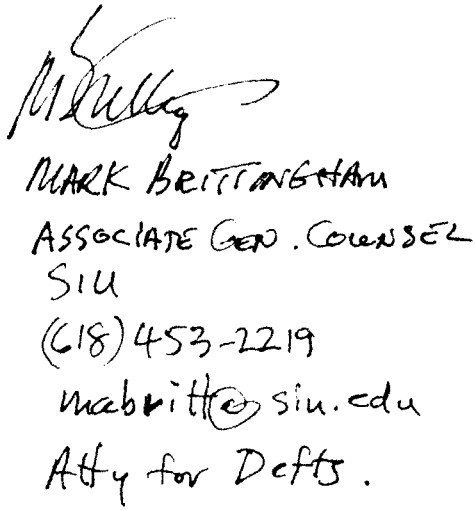 MARK BRITTINGHAM
ASSOCIATE GEN. COUNSEL
SIU
(618) 453-2219
mabritt@siu.edu
Atty for Defts.